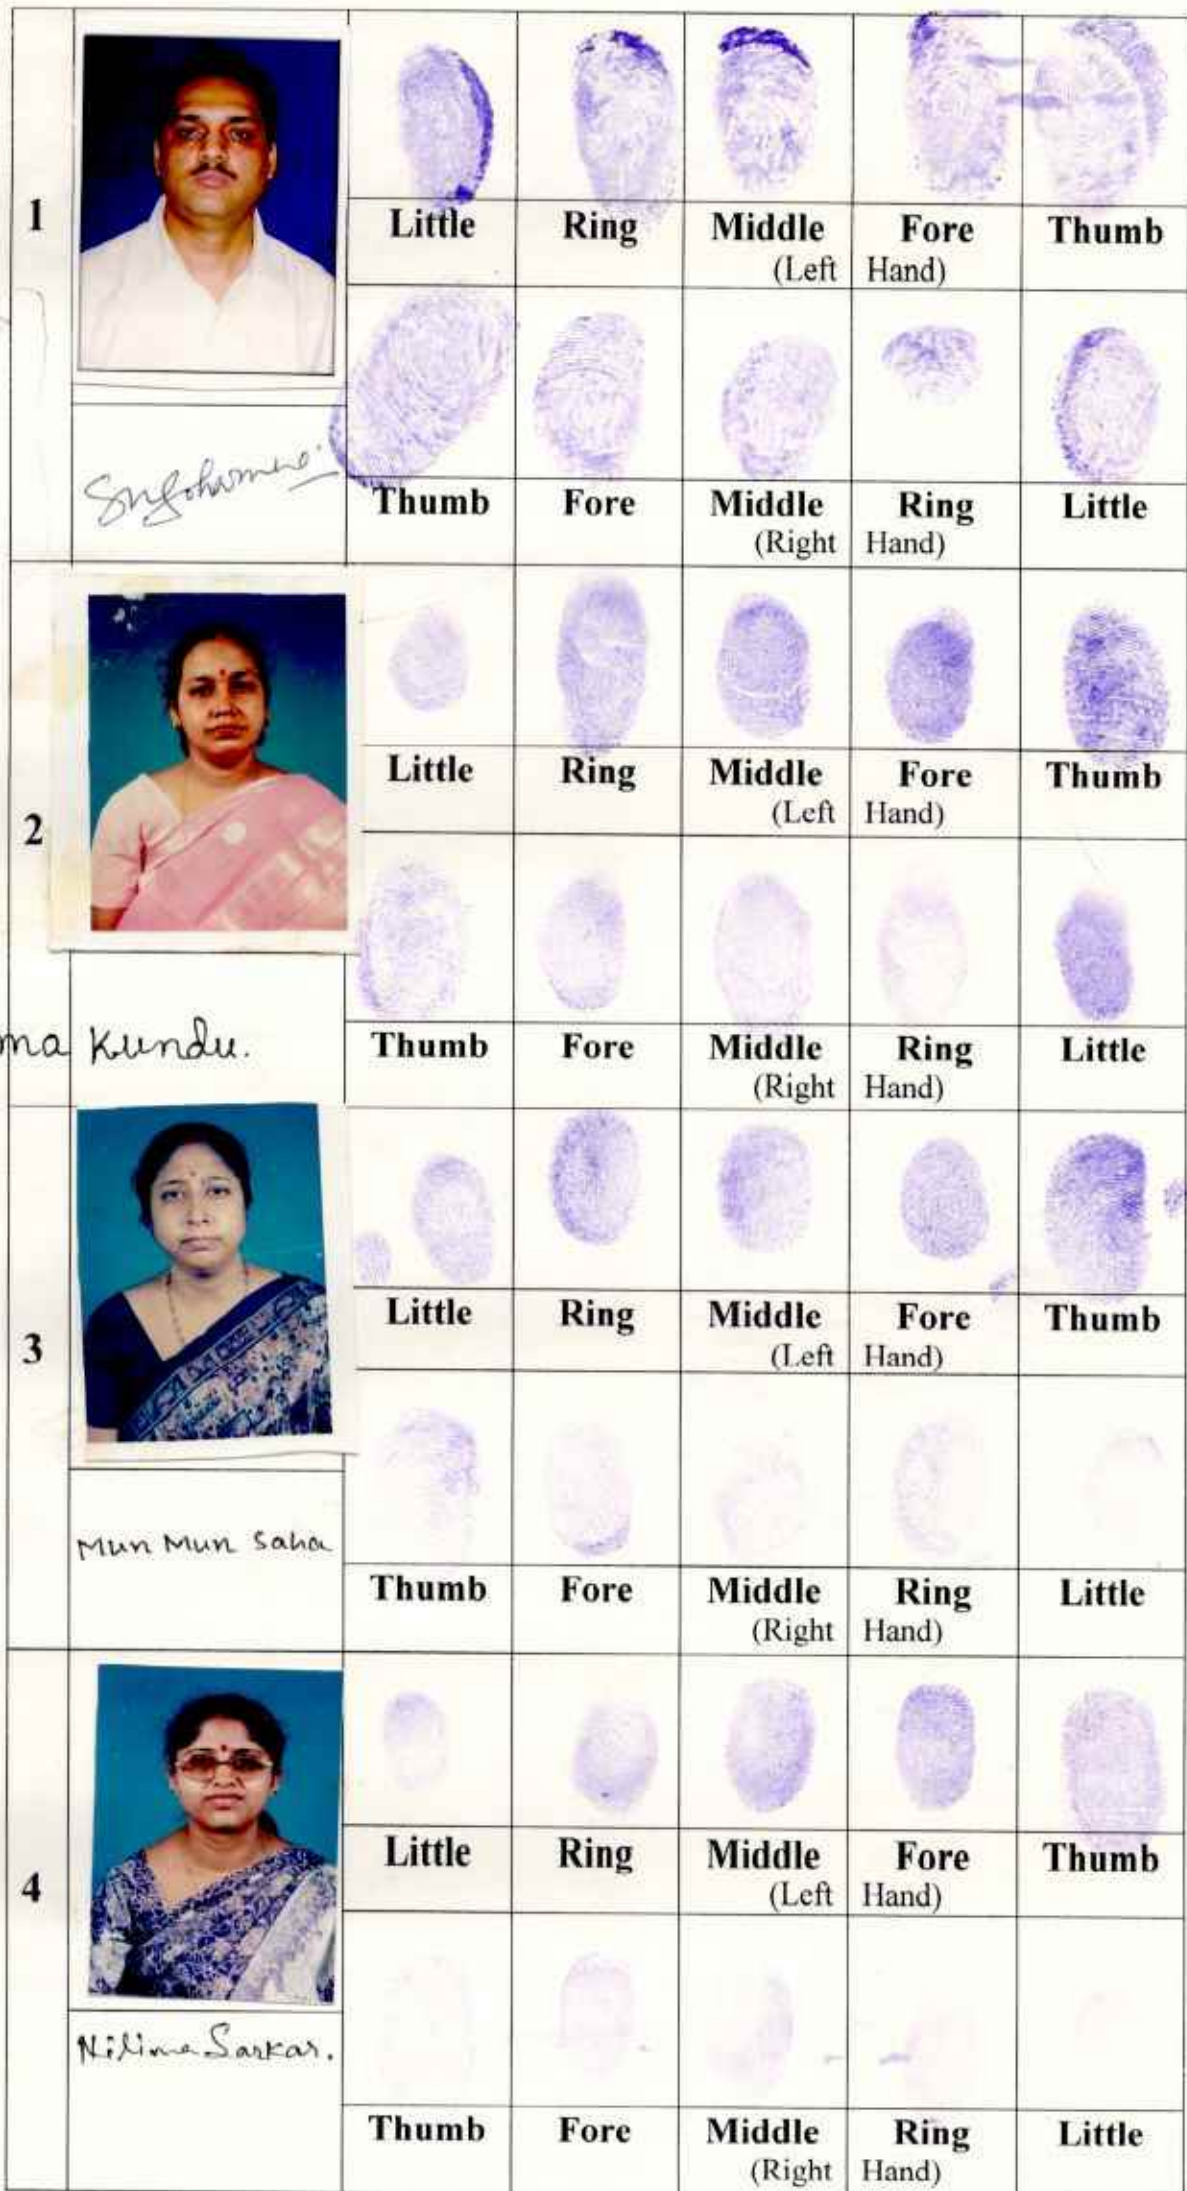 1
Little Ring Middle Fore Thumb
(Left Hand)
Thumb Fore Middle Ring Little
(Right Hand)
2
Little Ring Middle Fore Thumb
(Left Hand)
ma Kundu.
Thumb Fore Middle Ring Little
(Right Hand)
3
Little Ring Middle Fore Thumb
(Left Hand)
Mun Mun Saha
Thumb Fore Middle Ring Little
(Right Hand)
4
Little Ring Middle Fore Thumb
(Left Hand)
Nilima Sarkar.
Thumb Fore Middle Ring Little
(Right Hand)